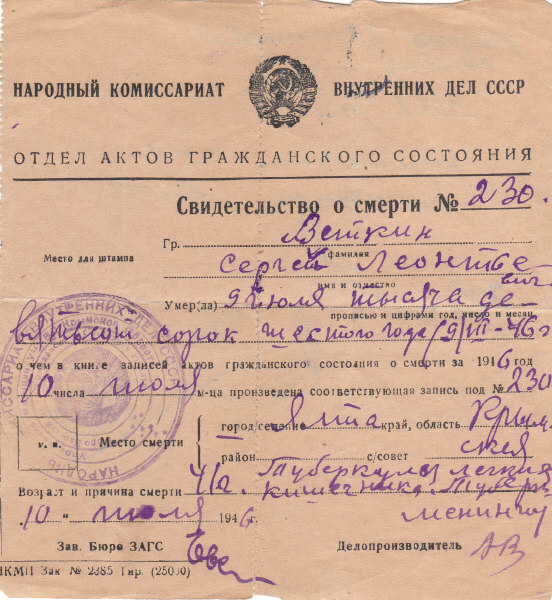 НАРОДНЫЙ КОМИССАРИАТ ВНУТРЕННИХ ДЕЛ СССР
ОТДЕЛ АКТОВ ГРАЖДАНСКОГО СОСТОЯНИЯ
Свидетельство о смерти № 230.
Гр. Веткин
Место для штампа
фамилия
Сергей Леонтье
вич
имя и отчество
Умер(ла) 9 июля тысяча де-
прописью и цифрами год, число и месяц
вятьсот сорок шестого года (9/VII-46 г
о чем в книге записей актов гражданского состояния о смерти за 1946 год
10 числа июля м-ца произведена соответствующая запись под № 230
город/селение Ялта край, область Крым-
ская
Место смерти
район с/совет
Туберкулез легких
Возраст и причина смерти 41 г. кишечника. Туберк.
10 " июля 1946 г. менингит
Зав. Бюро ЗАГС Делопроизводитель
НКМП Зак № 2385 Тир. (25000)